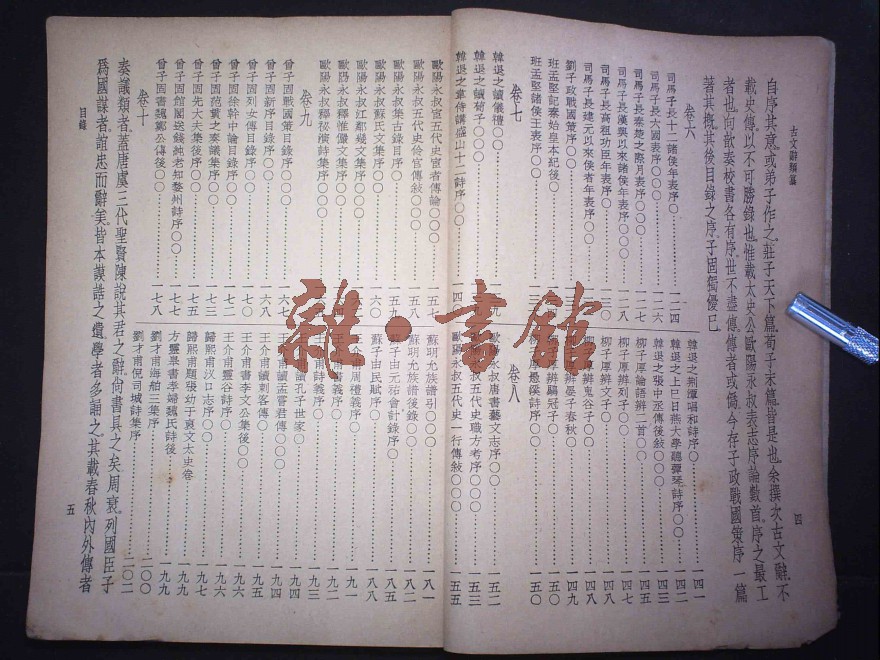 古文辭類纂
四
自序其意或弟子作之莊子天下篇荀子末篇皆是也余撰次古文辭不
載史傳以不可勝錄也惟載太史公歐陽永叔表志序論數首序之最工
者也向歆奏校書各有序世不盡傳傳者或偽今存子政戰國策序一篇
著其概其後目錄之序子固獨優已
卷六
司馬子長十二諸侯年表序〇……一二四
司馬子長六國表序〇〇……一二六
司馬子長秦楚之際月表序〇〇〇……一二八
司馬子長漢興以來諸侯年表序〇〇〇……一三〇
司馬子長高祖功臣年表序〇……
司馬子長建元以來侯者年表序〇……
劉子政戰國策序〇〇……
班孟堅記秦始皇本紀後〇……
班孟堅諸侯王表序〇……
卷七
韓退之讀儀禮〇……
韓退之讀荀子〇〇〇……
韓退之韋侍講盛山十二詩序〇〇……
韓退之荊潭唱和詩序〇……一四一
韓退之上巳日燕太學聽彈琴詩序〇〇……一四二
韓退之張中丞傳後敍〇〇〇……一四三
柳子厚論語辨二首〇〇……一四六
柳子厚辨列子〇……一四七
柳子厚辨文子〇……一四八
柳子厚辨鬼谷子〇……一四八
柳子厚辨晏子春秋〇……一四九
柳子厚辨鶡冠子〇……一五〇
柳子厚愚溪詩序〇……一五〇
卷八
歐陽永叔唐書藝文志序〇……一五二
歐陽永叔五代史職方考序〇〇……一五三
歐陽永叔五代史一行傳敍〇〇〇……一五五
歐陽永叔五代史宦者傳論〇〇〇……一五七
歐陽永叔五代史伶官傳敍〇〇〇……一五八
歐陽永叔集古錄目序〇〇……一五九
歐陽永叔蘇氏文集序〇〇……一六〇
歐陽永叔江鄰幾文集序〇〇……
歐陽永叔釋惟儼文集序〇……
歐陽永叔釋秘演詩集序〇〇……
卷九
曾子固戰國策目錄序〇〇……一六七
曾子固新序目錄序〇……一六八
曾子固列女傳目錄序〇……
曾子固徐幹中論目錄序〇……一七二
曾子固范貫之奏議集序〇〇……一七三
曾子固先大夫集後序〇〇……一七五
曾子固館閣送錢純老知婺州詩序〇〇……一七七
曾子固書魏鄭公傳後〇〇……一七八
蘇明允族譜引〇〇〇……一八一
蘇明允族譜後錄〇〇……一八二
蘇子由元祐會計錄序〇……
蘇子由民賦序〇……一八八
王介甫周禮義序〇……
王介甫書義序〇……
王介甫詩義序〇……一九三
王介甫讀孔子世家〇……
王介甫讀孟嘗君傳〇〇〇……一九四
王介甫讀刺客傳〇……一九五
王介甫書李文公集後〇〇……一九六
王介甫靈谷詩序〇……一九六
歸熙甫汊口志序〇〇……一九七
歸熙甫題張幼于裒文太史卷……一九九
方靈皋書孝婦魏氏詩後……一九九
劉才甫海舶三集序……二〇〇
劉才甫倪司城詩集序……二〇二
卷十
奏議類者蓋唐虞三代聖賢陳說其君之辭尚書具之矣周衰列國臣子
爲國謀者誼忠而辭美皆本謨誥之遺學者多誦之其載春秋內外傳者
目錄
五
雜·書館